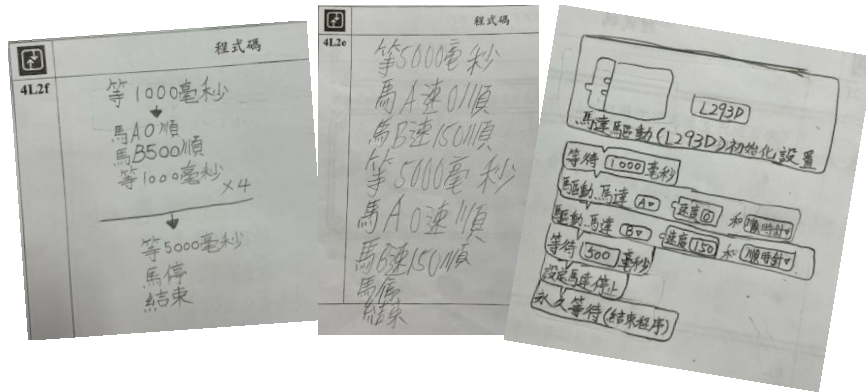 程式碼
4L2f
等1000毫秒
馬A0順
馬B500順
等1000毫秒
×4
等5000毫秒
馬停
結束
程式碼
4L2e
等5000毫秒
馬A速0順
馬B速150順
等5000毫秒
馬A0速順
馬B速150順
馬停
結束
L293D
馬達驅動(L293D)初始化設置
等待 1000 毫秒
驅動馬達 A 速度 0 和 順時針
驅動馬達 B 速度 150 和 順時針
等待 500 毫秒
設定馬達停止
永久等待(結束程序)